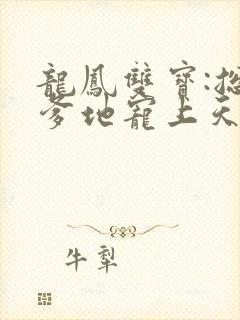 龍鳳雙寶:
爹地寵上天
牛犁